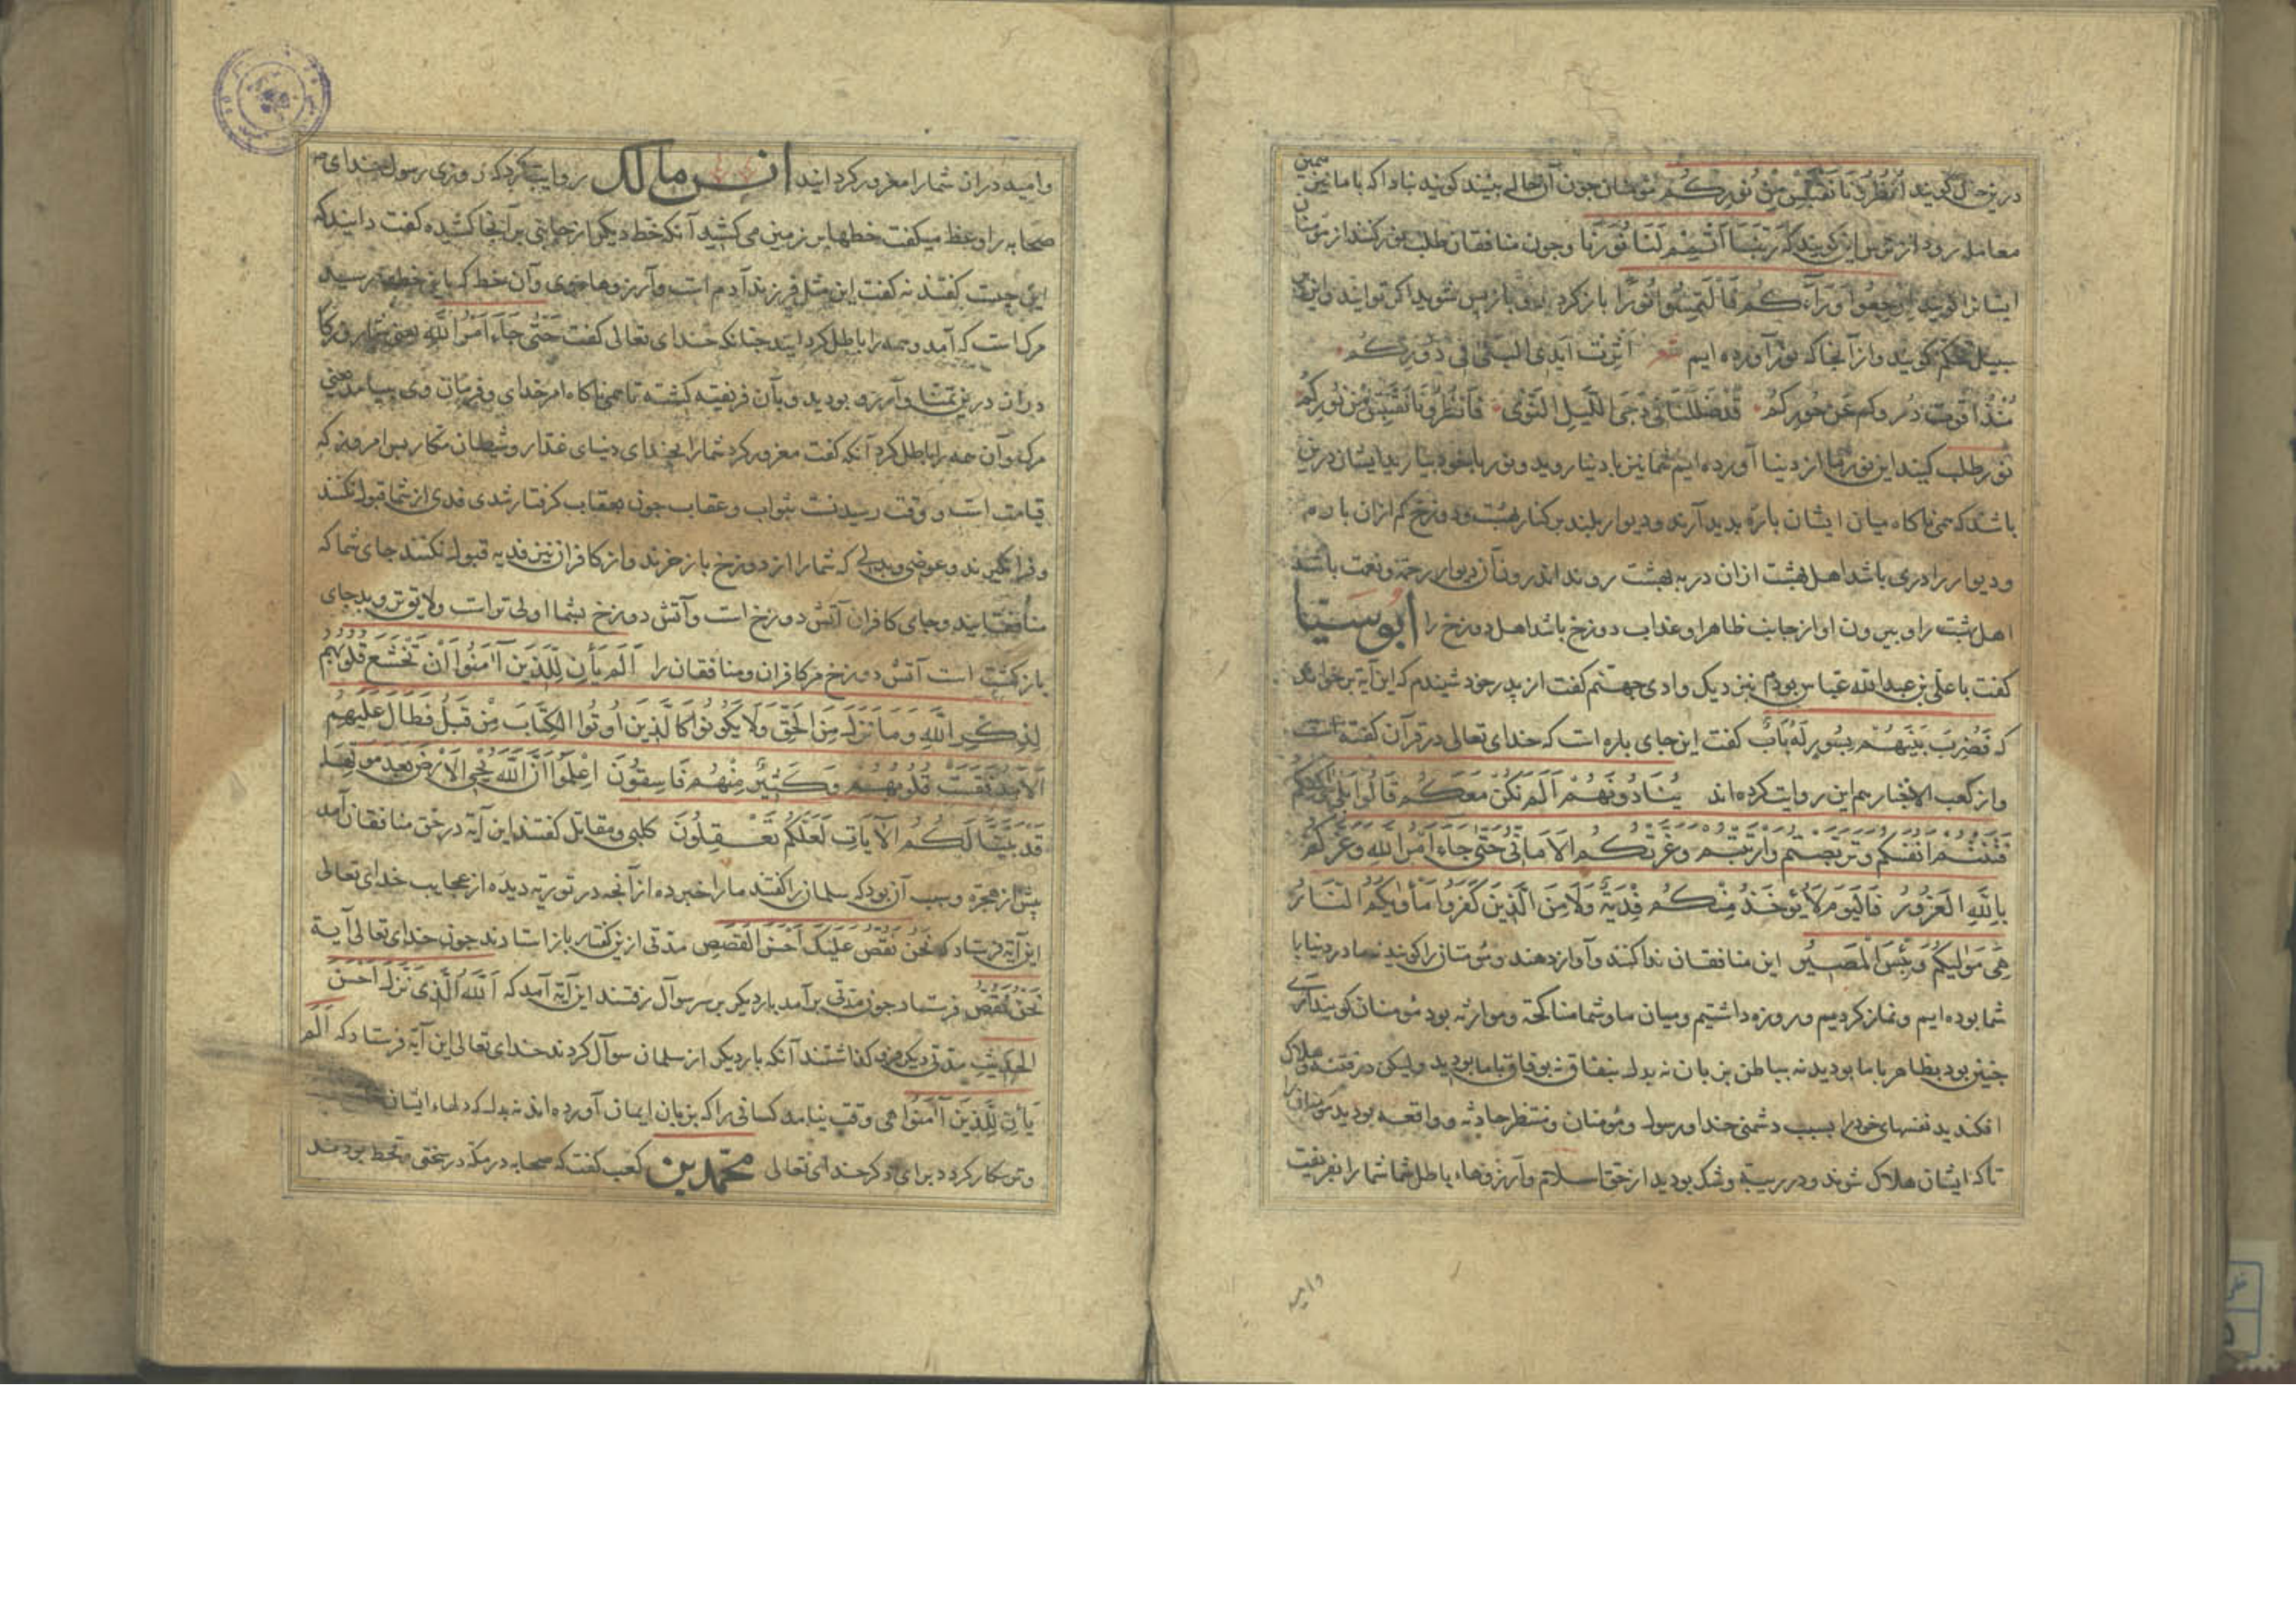 درین حال گویند انظرونا نقتبس من نورکم مؤمنان چون آن حالی بینند گویند نباداکه با ما نیز همین
معامله رود از ترس این گویند که ربنا اتمم لنا نورنا و چون منافقان طلب نور کنند از مؤمنان
ایشانرا گویند ارجعوا وراءکم فالتمسوا نورا بازگردید و باز پس شوید اگر توانید و این
سبیل تهکم گویند و از آنجا که نور آورده ایم شعر اثرت ایدی البلی فی دورکم
منذ اقوت دورکم عن حورکم فلضللنا فی دجی اللیل النوی فانظرونا نقتبس من نورکم
نور طلب کنید این نور ما از دنیا آورده ایم شما نیز با دنیا روید و نور با خود بیارید ایشان درین
باشند که همی ناگاه میان ایشان باره پدید آرند و دیوار بلند بر کنار بهشت و دوزخ کم ازان بارم
و دیوار را دری باشد اهل بهشت ازان در به بهشت روند اندرون آن دیوار رحمة و نعمت باشد
اهل بهشت را و بیرون او از جانب ظاهر او عذاب دوزخ باشد اهل دوزخ را ابوسنا
کفت با علی بن عبدالله عباس بودم بنزدیک وادی جهنم کفت از پدر خود شنیدم که این آیة بر خواند
که فضرب بینهم بسور له باب کفت این جای باره است که خدای تعالی در قرآن کفته است
و از کعب الاخبار هم این روایت کرده اند ینادونهم الم نکن معکم قالوا بلی ولکنکم
فتنتم انفسکم وتربصتم وارتبتم وغرتکم الامانی حتی جاء امر الله وغرکم
بالله الغرور فالیوم لا یؤخذ منکم فدیة ولا من الذین کفروا مأویکم النار
هی مولیکم وبئس المصیر این منافقان ندا کنند و آواز دهند و مؤمنان را گویند نه ما در دنیا با
شما بوده ایم و نماز کردیم و روزه داشتیم و میان ما و شما مناکحة و موارثه بود مؤمنان گویند آری
چنین بود بظاهر با ما بودید نه بباطن بزبان نه بدل بنفاق نه بوفاق با ما بودید ولیکن در فتنه و هلاک
افکندید نفسهای خود را بسبب دشمنی خدا و رسول و مؤمنان و منتظر حادثه و واقعه بودید مؤمنانرا
تا که ایشان هلاک شوند و در ریبة و شک بودید از حق اسلام و آرزوهاء باطل شما شما را بفریفت
وامید
وامید دران شما را مغرور کردانید انس مالک روایت کرد که روزی رسول خدای
صحابه را وعظ میکفت خطها بر زمین می کشید آنکه خط دیکر از جانبی بر آنجا کشیده کفت دانید که
این چیست کفتند نه کفت این مثل فرزند آدم است و آرزوهاء وی و آن خط که باین خطها رسید
مرک است که آمد و همه را باطل کردانید چنانکه خدای تعالی کفت حتی جاء امر الله یعنی شما روزکا
دران درین تمنا و آرزو بودید و بآن فریفته کشته تا همی ناکاه امر خدای و فرمان وی بیامد یعنی
مرک و آن همه را باطل کرد آنکه کفت مغرور کرد شما را بخدای دنیای غدار و شیطان مکار پس امروز که
قیامت است و وقت رسیدنست بثواب و عقاب چون بعقاب کرفتار شدی فدی از شما قبول نکنند
و فرا نکیرند و عوضی و بدلی که شما را از دوزخ باز خرند و از کافران نیز فدیه قبول نکنند جای شما که
منافقانید و جای کافران آتش دوزخ است و آتش دوزخ بشما اولی تر است و لایق تر و بد جای
بازکشت است آتش دوزخ مر کافران و منافقان را الم یأن للذین آمنوا ان تخشع قلوبهم
لذکر الله وما نزل من الحق ولا یکونوا کالذین اوتوا الکتاب من قبل فطال علیهم
الامد فقست قلوبهم وکثیر منهم فاسقون اعلموا ان الله یحی الارض بعد موتها
قد بینا لکم الآیات لعلکم تعقلون کلبی و مقاتل کفتند این آیة در حق منافقان آمد
پیش از هجرة و سبب آن بود که سلمان را کفتند ما را خبر ده از آنچه در توریة دیده از عجایب خدای تعالی
این آیة فرستاد که نحن نقص علیک احسن القصص مدتی ازین کفتار باز استادند چون خدای تعالی آیة
نحن نقص فرستاد چون مدتی برآمد بار دیکر بر سر سوآل رفتند این آیة آمد که الله الذی نزل احسن
الحدیث مدتی دیکر فرو کذاشتند آنکه بار دیکر از سلمان سوآل کردند خدای تعالی این آیة فرستاد که الم
یأن للذین آمنوا همی وقت نیامد کسانی را که بزبان ایمان آورده اند نه بدل که دلهاء ایشان
و ترسکار کردد برای ذکر خدای تعالی محمد بن کعب کفت که صحابه در مکه در سختی و قحط بودند